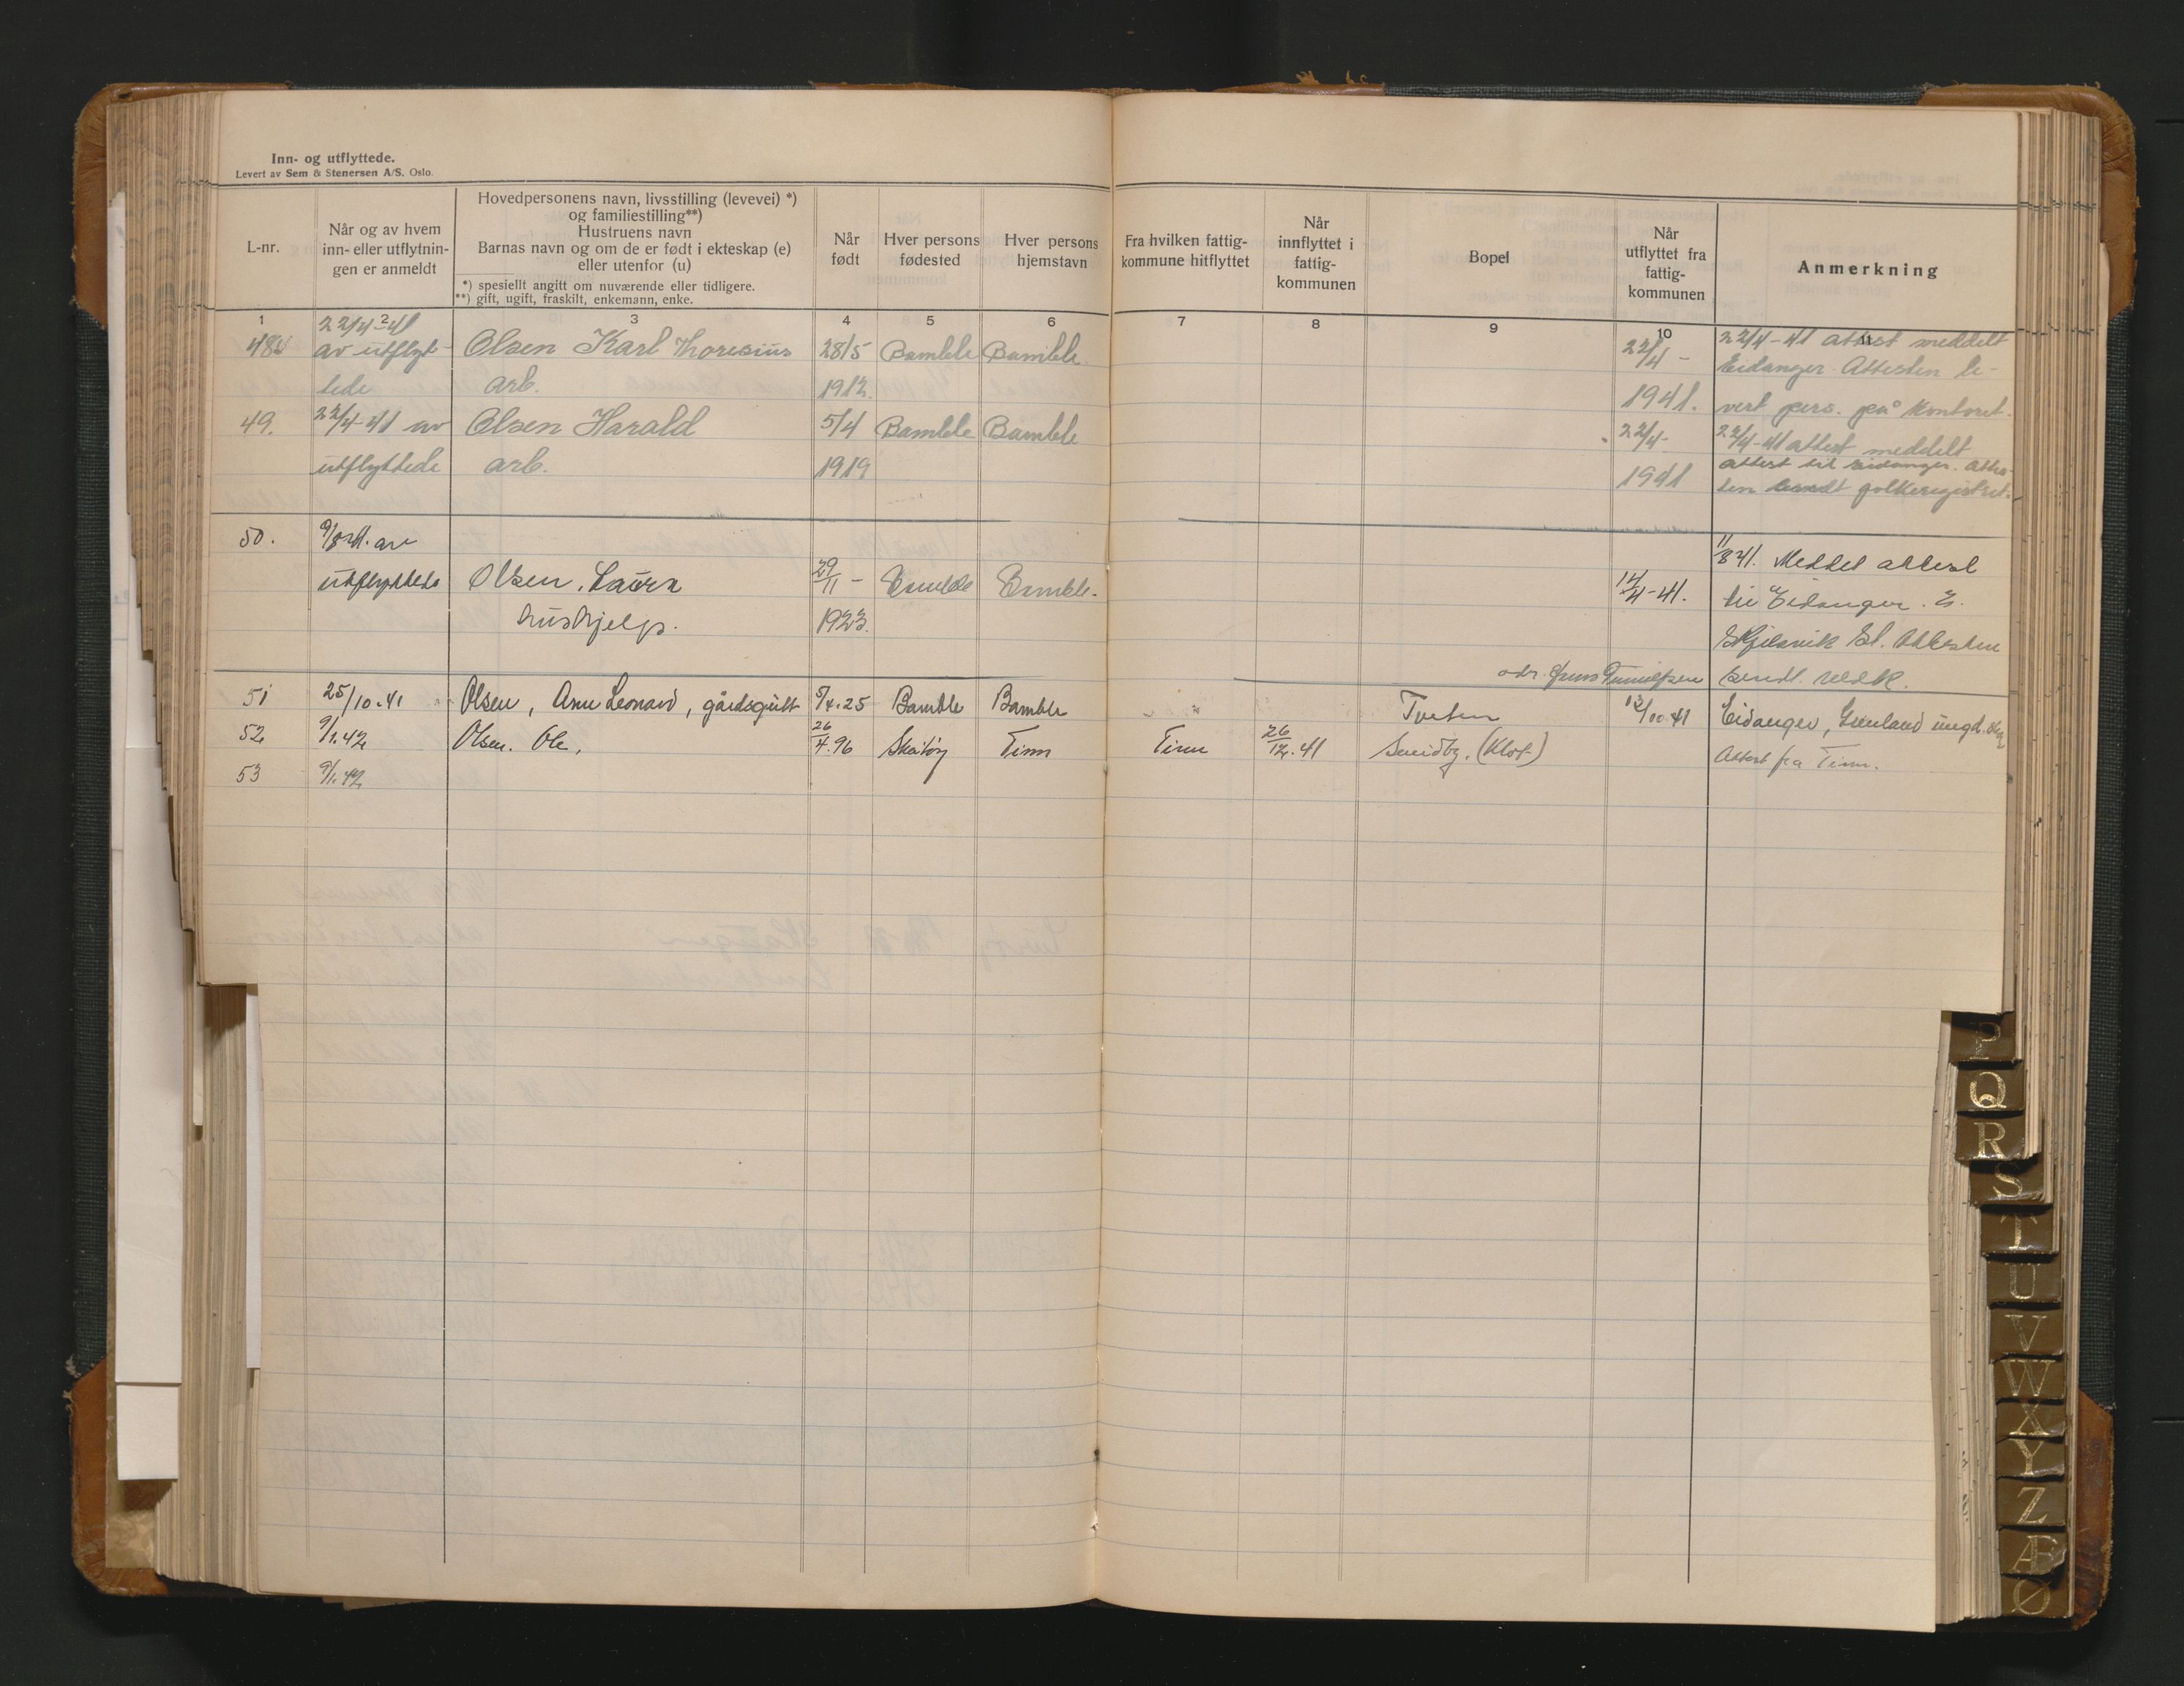 Inn- og utflyttede.
Levert av Sem & Stenersen A/S. Oslo.
L-nr.
Når og av hvem
inn- eller utflytnin-
gen er anmeldt
Hovedpersonens navn, livsstilling (levevei) *)
og familiestilling**)
Hustruens navn
Barnas navn og om de er født i ekteskap (e)
eller utenfor (u)
*) spesiellt angitt om nuværende eller tidligere.
**) gift, ugift, fraskilt, enkemann, enke.
Når
født
Hver persons
fødested
Hver persons
hjemstavn
Fra hvilken fattig-
kommune hitflyttet
Når
innflyttet i
fattig-
kommunen
Bopel
Når
utflyttet fra
fattig-
kommunen
Anmerkning
1 2 3 4 5 6 7 8 9 10 11
22/4-41
48 av utflyt- Olsen Karl Thoresius 28/5 Bamble Bamble 22/4- 22/4-41 attest meddelt
Eidanger. Attesten le-
tede arb. 1912. 1941. vert pers. på kontoret.
49. 22/4-41 av Olsen Harald 5/4 Bamble Bamble 22/4- 22/4-41 attest meddelt
utflyttede arb. 1919 1941 attest til Eidanger. Attes-
ten sendt folkeregistret.
50. 9/8 41. av 11/8 41. Meddel attest
utflyttede Olsen, Laura 29/11 - Bamble Bamble. 12/4-41. til Eidanger.
hushjelp. 1923. Skjelsvik St. Attesten
adr. sendt
51 25/10.41 Olsen, Arne Leonard, gårdsgutt 5/4.25 Bamble Bamble Tveten 13/10 41 Eidanger, Grenland ungd.
52 9/1.42 Olsen. Ole. 26/4.96 Skåtøy Tinn Tinn 26/12.41 (Klot) Attest fra Tinn.
53 9/1.42
P
Q
R
S
T
U
V
W
X
Y
Z
Æ
Ø